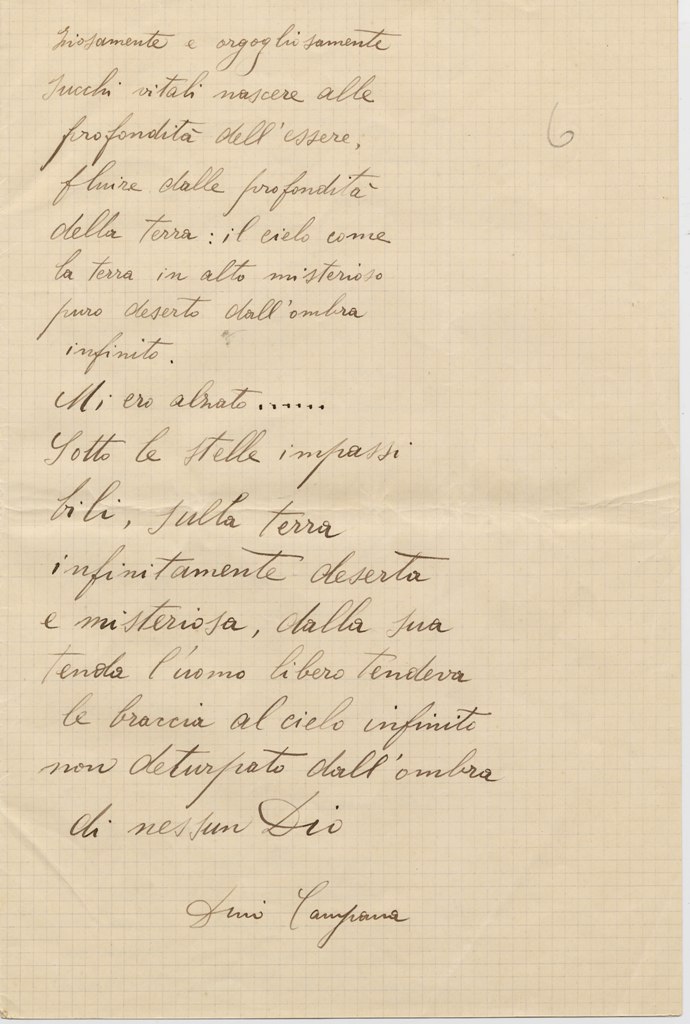 ziosamente e orgogliosamente
succhi vitali nascere alle
profondità dell'essere,
fluire dalle profondità
della terra: il cielo come
la terra in alto misterioso
puro deserto dall'ombra
infinito.
Mi ero alzato......
Sotto le stelle impassi
bili, sulla terra
infinitamente deserta
e misteriosa, dalla sua
tenda l'uomo libero tendeva
le braccia al cielo infinito
non deturpato dall'ombra
di nessun Dio
Dino Campana
6